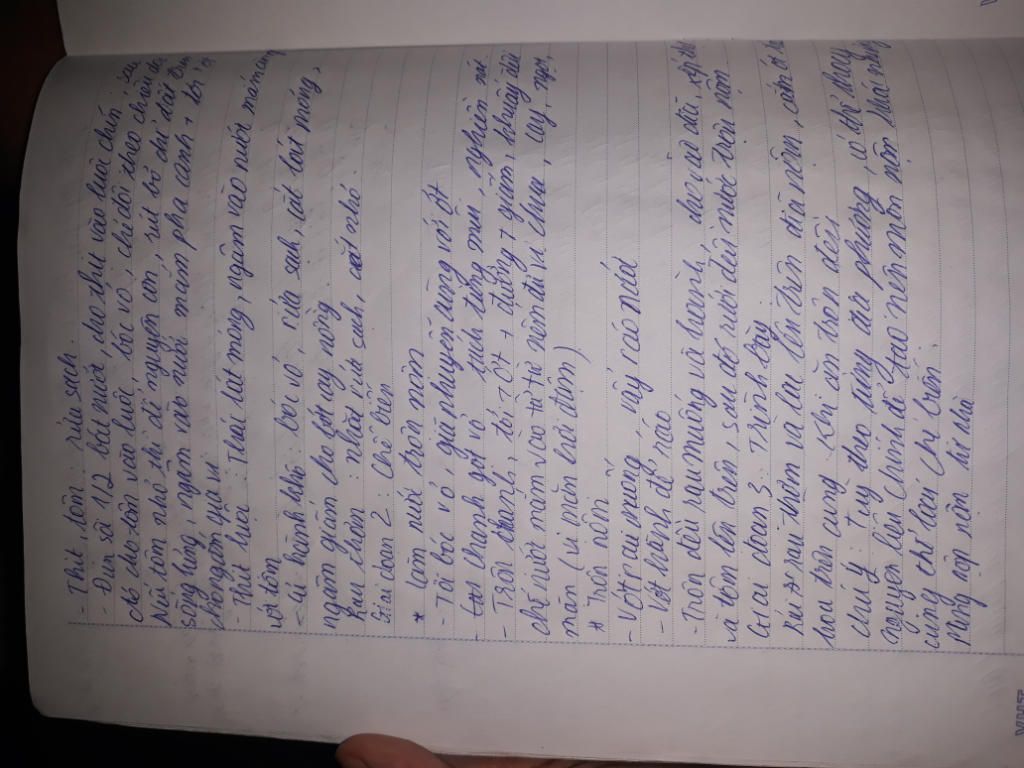 - Thịt, tôm : rửa sạch.
- Đun sôi 1/2 bát nước, cho thịt vào luộc chín, sau
đó cho tôm vào luộc, bóc vỏ, chẻ đôi theo chiều dọc
Nếu tôm nhỏ thì để nguyên con, rút bỏ chỉ đất trên
sống lưng, ngâm vào nước mắm pha chanh + tỏi, ớt
khoảng
- Thịt luộc : Thái lát mỏng, ngâm vào nước mắm cùng
với tôm
- Củ hành khô : bóc vỏ, rửa sạch, cắt lát mỏng,
ngâm giấm cho bớt cay nồng.
Rau thơm : nhặt rửa sạch, cắt nhỏ.
Giai đoạn 2 : Chế biến
* Làm nước trộn nộm
- Tỏi bóc vỏ giã nhuyễn cùng với ớt
- chanh gọt vỏ tách từng múi, nghiền nát
- Trộn chanh, tỏi + ớt + đường + giấm, khuấy đều
chế nước mắm vào từ từ nếm đủ vị chua, cay, ngọt,
mặn (vị mặn hơi đậm)
* Trộn nộm
- Vớt rau muống, vẩy ráo nước
- Vớt hành để ráo
- Trộn đều rau muống và hành, cho vào đĩa, xếp thịt
và tôm lên trên, sau đó rưới đều nước trộn nộm.
Giai đoạn 3. Trình bày
Rải rau thơm và lạc lên trên đĩa nộm, cắm ớt
hoa trên cùng khi ăn trộn đều
Chú ý : tuỳ theo từng địa phương, có thể thay
nguyên liệu chính để tạo nên món nộm khác nhưng
cũng thể loại chế biến.